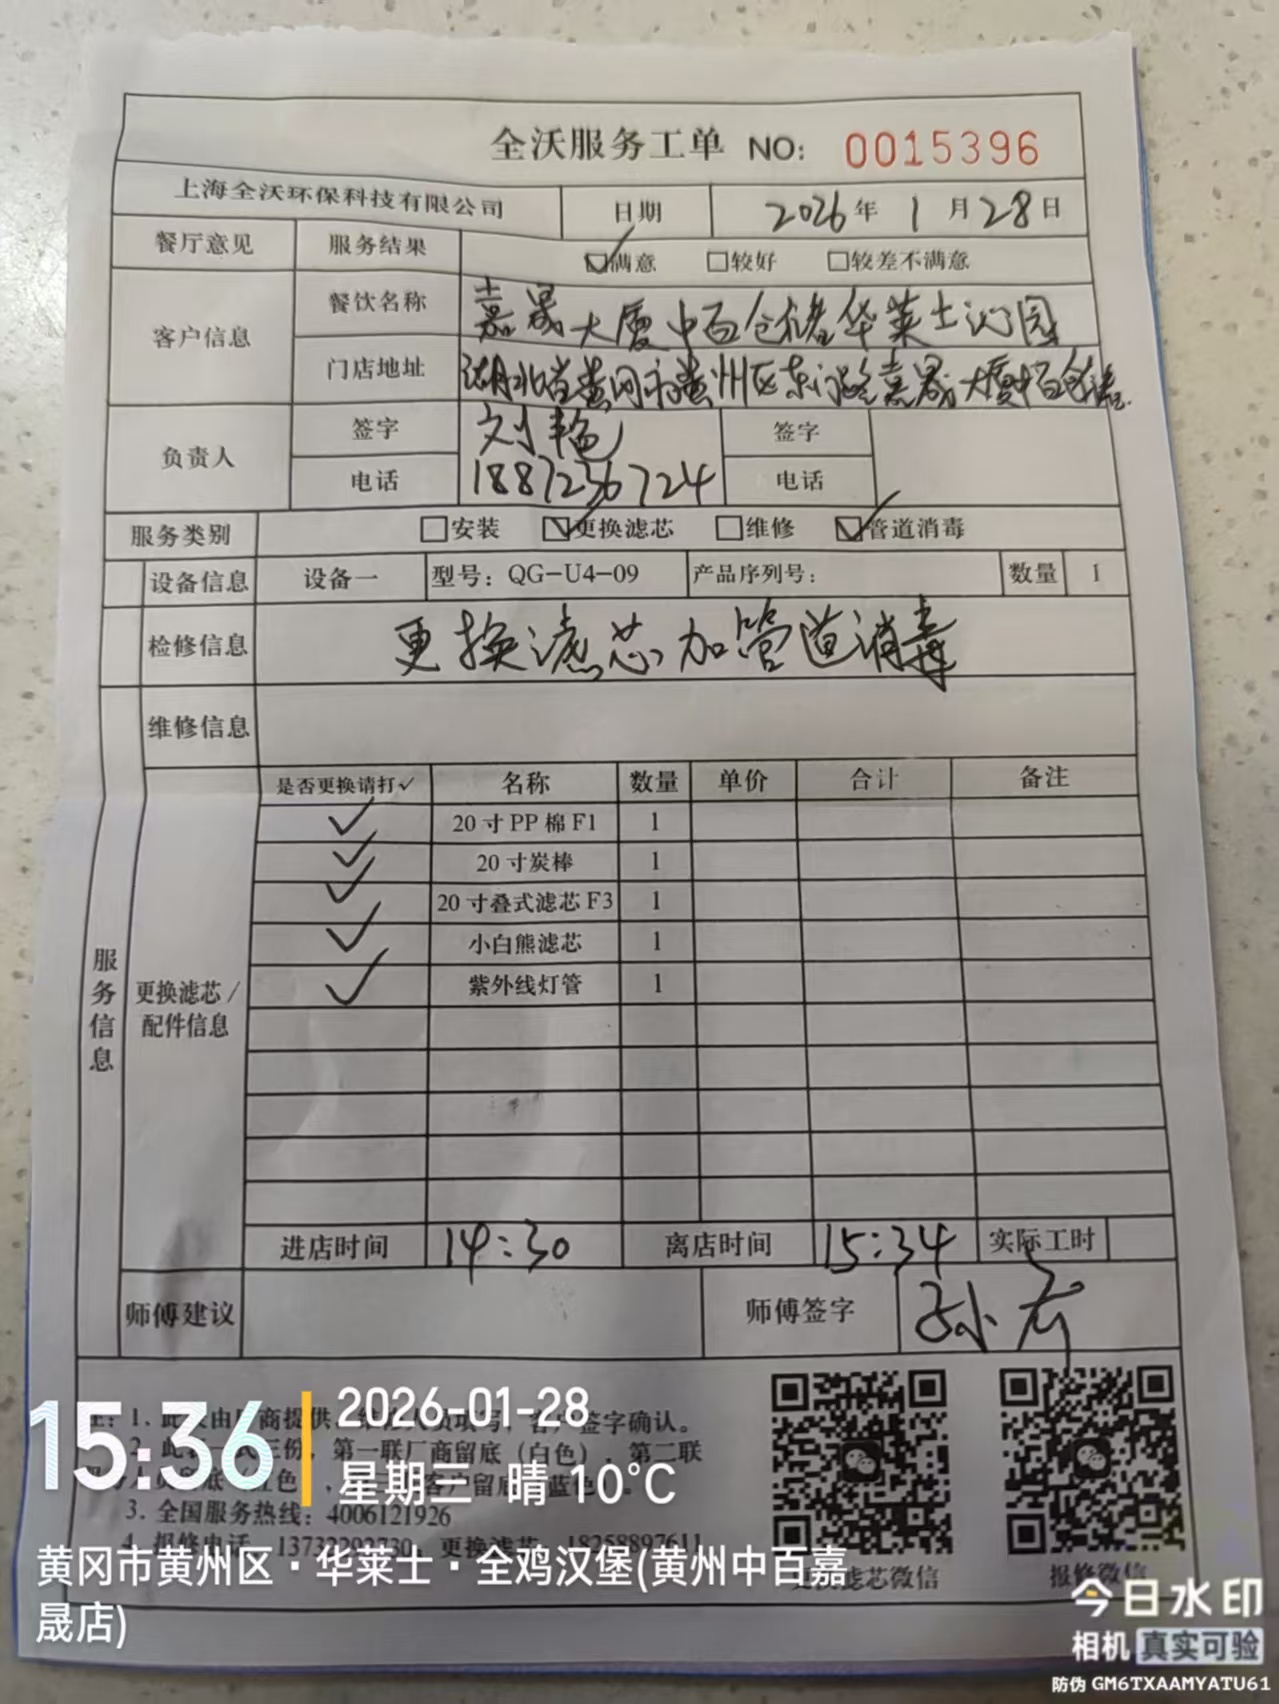 全沃服务工单 NO: 0015396
上海全沃环保科技有限公司 日期 2026年 1月28日
餐厅意见 服务结果 满意 较好 较差不满意
客户信息 餐饮名称 嘉晟大厦中百仓储华莱士沁园
门店地址 湖北省黄冈市黄州区东门路嘉晟大厦中百仓储
负责人 签字 刘艳 签字
电话 18872367244 电话
服务类别 安装 更换滤芯 维修 管道消毒
设备信息 设备一 型号: QG-U4-09 产品序列号: 数量 1
检修信息 更换滤芯加管道消毒
维修信息
服务信息
更换滤芯/配件信息
是否更换请打✓ 名称 数量 单价 合计 备注
✓ 20寸PP棉F1 1
✓ 20寸炭棒 1
✓ 20寸叠式滤芯F3 1
✓ 小白熊滤芯 1
✓ 紫外线灯管 1
进店时间 14:30 离店时间 15:34 实际工时
师傅建议 师傅签字
1. 此 由 商提供 填写, 客户签字确认。
第一联厂商留底(白色), 第二联
客户留底 蓝色
3. 全国服务热线: 4006121926
4. 报修电话 更换滤芯 18258897611
滤芯微信 报修微信
15:36
2026-01-28
星期三 晴 10°C
黄冈市黄州区·华莱士·全鸡汉堡(黄州中百嘉
晟店)
今日水印
相机 真实可验
防伪 GM6TXAAMYATU61